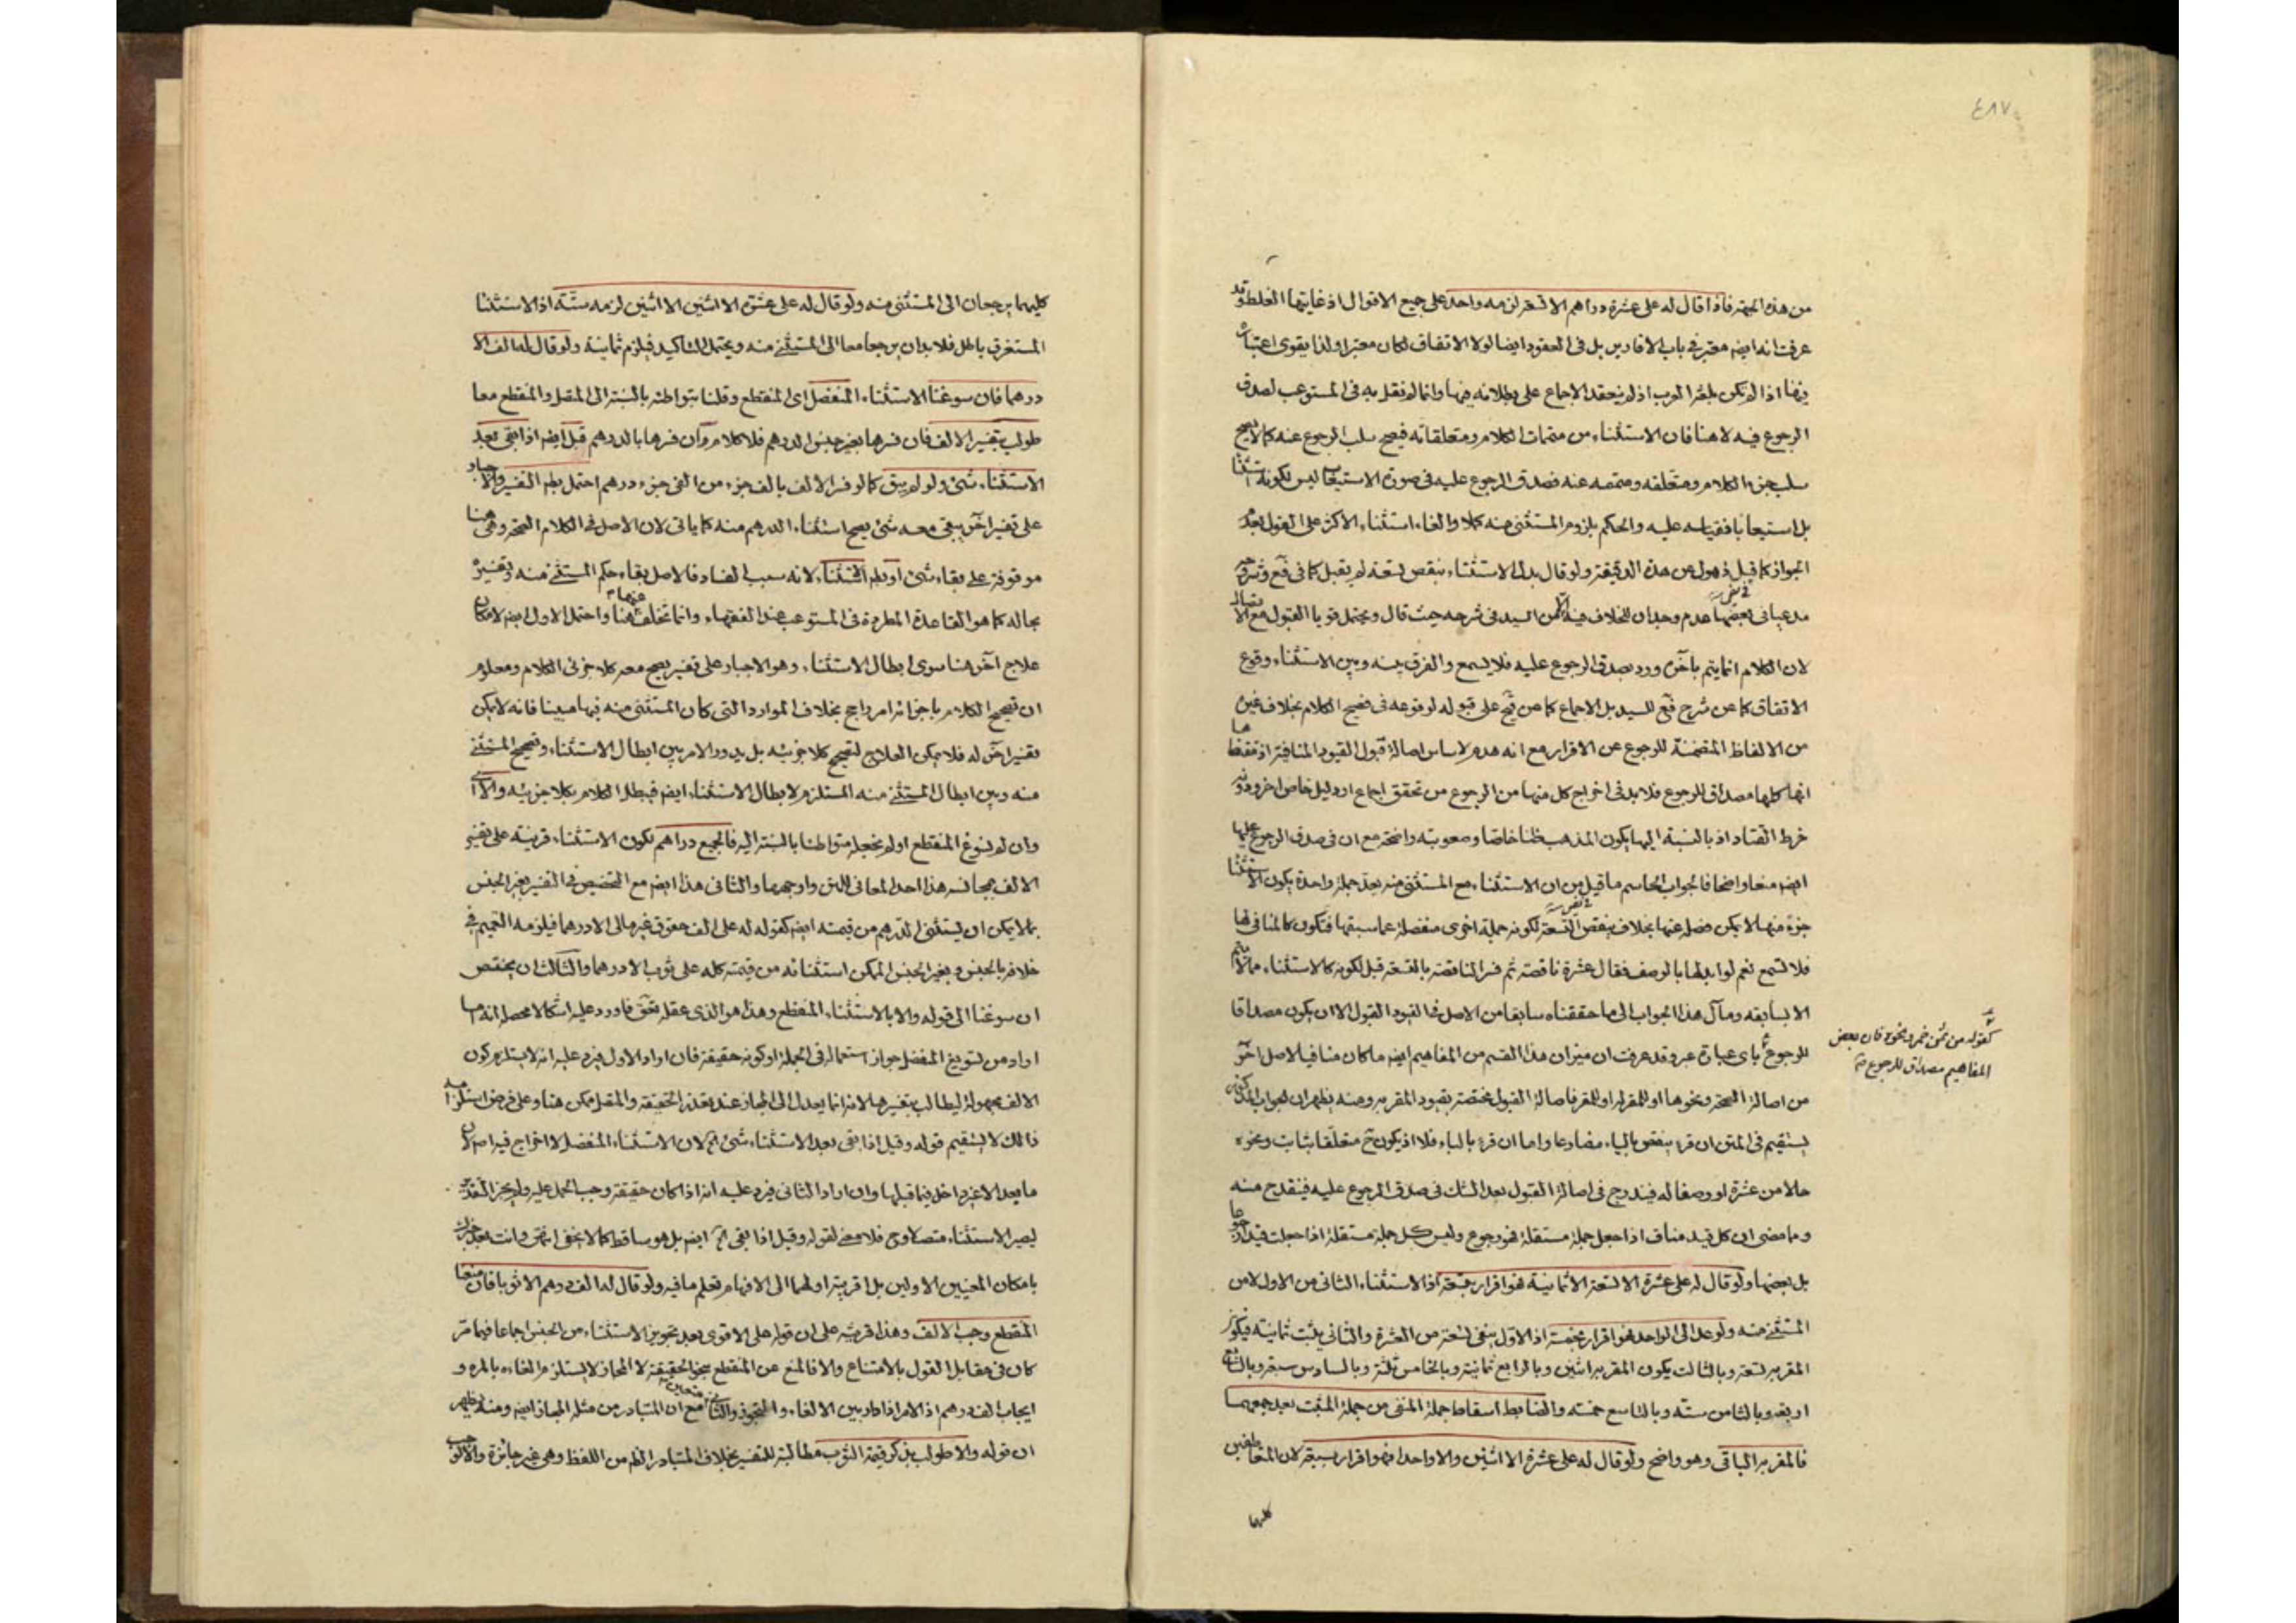 ٤٨٧
من هذه الجهة فاذا قال له على عشرة دراهم الا تسعة لزمه واحد على جميع الاقوال اذ غايتها الغلط وقد
عرفت انه ايضا معتبر في باب الاقارير بل في العقود ايضا لولا الاتفاق لكان معتبرا ولذا يقوى اعتباره
فيها اذا لم يكن بلغة العرب اذ لم ينعقد الاجماع على بطلانه فيها وانما لم نقل به في المستوعب لصدق
الرجوع فيه لا هنا فان الاستثناء من متممات الكلام ومتعلقاته فيصح سلب الرجوع عنه كما لا يصح
سلب جزء الكلام ومتعلقه ومتممه عنه فصدق الرجوع عليه في صورة الاستيعاب ليس لكونه استثنا
بل استيعابا فقياسه عليه والحكم بلزوم المستثنى منه كملا والغاء استثناء الاكثر على القول بعدم
الجواز كما قيل ذهول عن هذه الدقيقة ولو قال بدل الاستثناء ينقص تسعة لم يقبل كما في قع وشروحه
مدعيا في بعضها عدم وجدان الخلاف فيه الا من السيد في شرحه حيث قال ويحتمل قويا القبول مع الاتصال
لان الكلام انما يتم بآخره ورد بصدق الرجوع عليه فلا يسمع والفرق بينه وبين الاستثناء وقوع
الاتفاق كما عن شرح قع للسيد بل الاجماع كما عن قح على قبوله لوقوعه في فصيح الكلام بخلاف غيره
من الالفاظ المتضمنة للرجوع عن الاقرار مع انه هدم لاساس اصالة قبول القيود المنافية اذ مقتضاها
انها كلها مصداق للرجوع فلا بد في اخراج كل منها من الرجوع من تحقق اجماع او دليل خاص اخر ودونه
خرط القتاد اذ بالنسبة اليها يكون المذهب ظنا خاصا وصعوبته واضحة مع ان في صدق الرجوع عليها
ايضا منعا واضحا فالجواب الحاسم ما قيل من ان الاستثناء مع المستثنى منه يعد جملة واحدة يكون الاستثنا
جزء منها لا يمكن فصله عنها بخلاف ينقص التسعة لكونه جملة اخرى منفصلة عما سبقها فتكون كالمنافي لها
فلا تسمع نعم لو ابدلها بالوصف فقال عشرة ناقصة ثم فسر الناقصة بالتسعة قبل لكونه كالاستثناء مما لا يتم
الا بسابقه ومآل هذا الجواب الى ما حققناه سابقا من الاصل في القيود القبول الا ان يكون مصداقا
للرجوع باى عبارة عبر وقد عرفت ان ميزان هذا القسم من المفاهيم ايضا ما كان منافيا لاصل آخر
من اصالة الصحة ونحوها او للمقر له او للمقر فاصالة القبول مختصة بقيود المقر به ومنه يظهر ان الجواب المذكور
يستقيم في المتن ان قرء ينقص بالياء مضارعا واما ان قرء بالباء فلا اذ يكون ح متعلقا بثابت ونحوه
حالا من عشرة او وصفا له فيندرج في اصالة القبول بعد الشك في صدق الرجوع عليه فينقدح منه
ومما مضى ان كل قيد مناف اذا جعل جملة مستقلة فهو رجوع وليس كل جملة مستقلة اذا جعلت قيدا رجوعا
بل بعضها ولو قال له على عشرة الا تسعة الا ثمانية فهو اقرار بتسعة اذ الاستثناء الثاني من الاول لا من
المستثنى منه ولو عد الى الواحد فهو اقرار بخمسة اذ الاول ينفى تسعة من العشرة والثاني يثبت ثمانية فيكون
المقر به تسعة وبالثالث يكون المقر به اثنين وبالرابع ثمانية وبالخامس ثلثة وبالسادس سبعة وبالسابع
اربعة وبالثامن ستة وبالتاسع خمسة والضابط اسقاط جملة المنفى من جملة المثبت بعد جمعهما
فالمقر به الباقي وهو واضح ولو قال له على عشرة الا اثنين والا واحدا فهو اقرار بسبعة لان المتعاطفين
كليهما
كقوله من ثمن خمر ونحوه فان بعض
المفاهيم مصداق للرجوع منه
كليهما يرجعان الى المستثنى منه ولو قال له على عشرة الا اثنين الا اثنين لزمه ستة اذ الاستثنا
المستغرق باطل فلا بد ان يرجعا معا الى المستثنى منه ويحتمل التاكيد فيلزم ثمانية ولو قال له الف الا
درهما فان سوغنا الاستثناء المنفصل اى المنقطع وقلنا بتواطئه بالنسبة الى المتصل والمنقطع معا
طولب بتفسير الالف فان فسرها بغير جنس الدرهم فلا كلام وان فسرها بالدرهم قبل ايضا اذا بقى بعد
الاستثناء شئ ولو لم يبق كما لو فسر الالف بالف جزء من الفي جزء درهم احتمل بطلان التفسير والاجبار
على تفسير آخر يبقى معه شئ يصح استثناء الدرهم منه كما ياتى لان الاصل في الكلام الصحة وهى هنا
موقوفة على بقاء شئ او بطلان الاستثناء لانه سبب الفساد فالاصل بقاء حكم المستثنى منه وتفسيره
بحاله كما هو القاعدة المطردة في المستوعب عند الفقهاء وانما تخلف عنها هنا واحتمل الاول ايضا لامكان
علاج آخر هنا سوى ابطال الاستثناء وهو الاجبار على تفسير يصح معه كلا جزئى الكلام ومعلوم
ان تصحيح الكلام باجزائه امر راجح بخلاف الموارد التى كان المستثنى منه فيها مبينا فانه لا يمكن
تفسير آخر له فلا يمكن العلاج لتصحيح كلا جزئيه بل يدور الامر بين ابطال الاستثناء وتصحيح المستثنى
منه وبين ابطال المستثنى منه المستلزم لابطال الاستثناء ايضا فيبطل الكلام بكلا جزئيه والا اى
وان لم نسوغ المنقطع او لم نجعله متواطئا بالنسبة اليه فالجميع دراهم لكون الاستثناء قرينة على تفسير
الالف بمجانسه هذا احد المعاني للمتن واوجهها والثاني هذا ايضا مع التخصيص في التفسير بغير الجنس
بما لا يمكن ان يستثنى الدرهم من قيمته ايضا كقوله له على الف حقوق غير مالى الا درهما فيلزمه التعميم في
خلافه بالجنس وبغير الجنس الممكن استثنائه من قيمته كله على ثوب الا درهما والثالث ان يختص
ان سوغنا الى قوله والا بالاستثناء المنقطع وهذا هو الذى عقله تحقق فاورد عليه اشكالا محصله انه اما
اراد من تسويغ المنفصل جواز استعماله في الجملة او كونه حقيقة فان اراد الاول فيرد عليه انه لا يستلزم كون
الالف مجهولة ليطالب بتفسيرها لانه انما يعدل الى المجاز عند تعذر الحقيقة والمتصل ممكن هنا وعلى فرض استلزامه
ذالك لا يستقيم قوله وقيل اذا بقى بعد الاستثناء شئ الخ لان الاستثناء المنفصل لا اخراج فيه اصلا لان
ما بعد الا غير داخل فيما قبلها وان اراد الثاني فيرد عليه انه اذا كان حقيقة وجب الحمل عليه ولم يجز التقدير
ليصير الاستثناء متصلا وح فلا معنى لقوله وقيل اذا بقى الخ ايضا بل هو ساقط كما لا يخفى انتهى وانت بعد خبرك
بامكان المعنيين الاولين بل اقربية اولهما الى الافهام تعلم ما فيه ولو قال له الف درهم الا ثوبا فان منعنا
المنقطع وجب الالف وهذا قرينة على ان قوله على الاقوى بعد تجويز الاستثناء من الجنس اجماعا فيما مر
كان في مقابل القول بالامتناع والا فالمنع عن المنقطع بنحو الحقيقة لا المجاز لا يستلزم الغاءه بالمرة و
ايجاب الف درهم اذ الامر اذا دار بين الالغاء والتجوز والثاني متعين مع ان المتبادر من مثله المجاز ايضا ومنه يظهر
ان قوله والا طولب بذكر قيمة الثوب مطالبة للتفسير بخلاف المتبادر الظاهر من اللفظ وهى غير جائزة والا لوجب